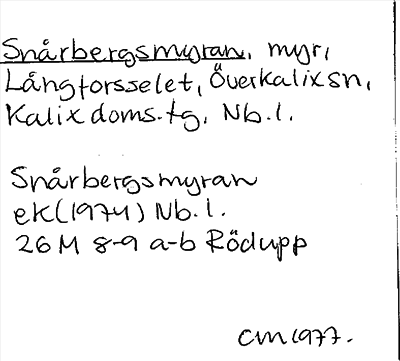 Snårbergsmyran, myr,
Långforsselet, Överkalix sn,
Kalix doms.tg, Nb.l.
Snårbergsmyran
ek (1974) Nb.l.
26 M 8-9 a-b Rödupp
CM 1977.